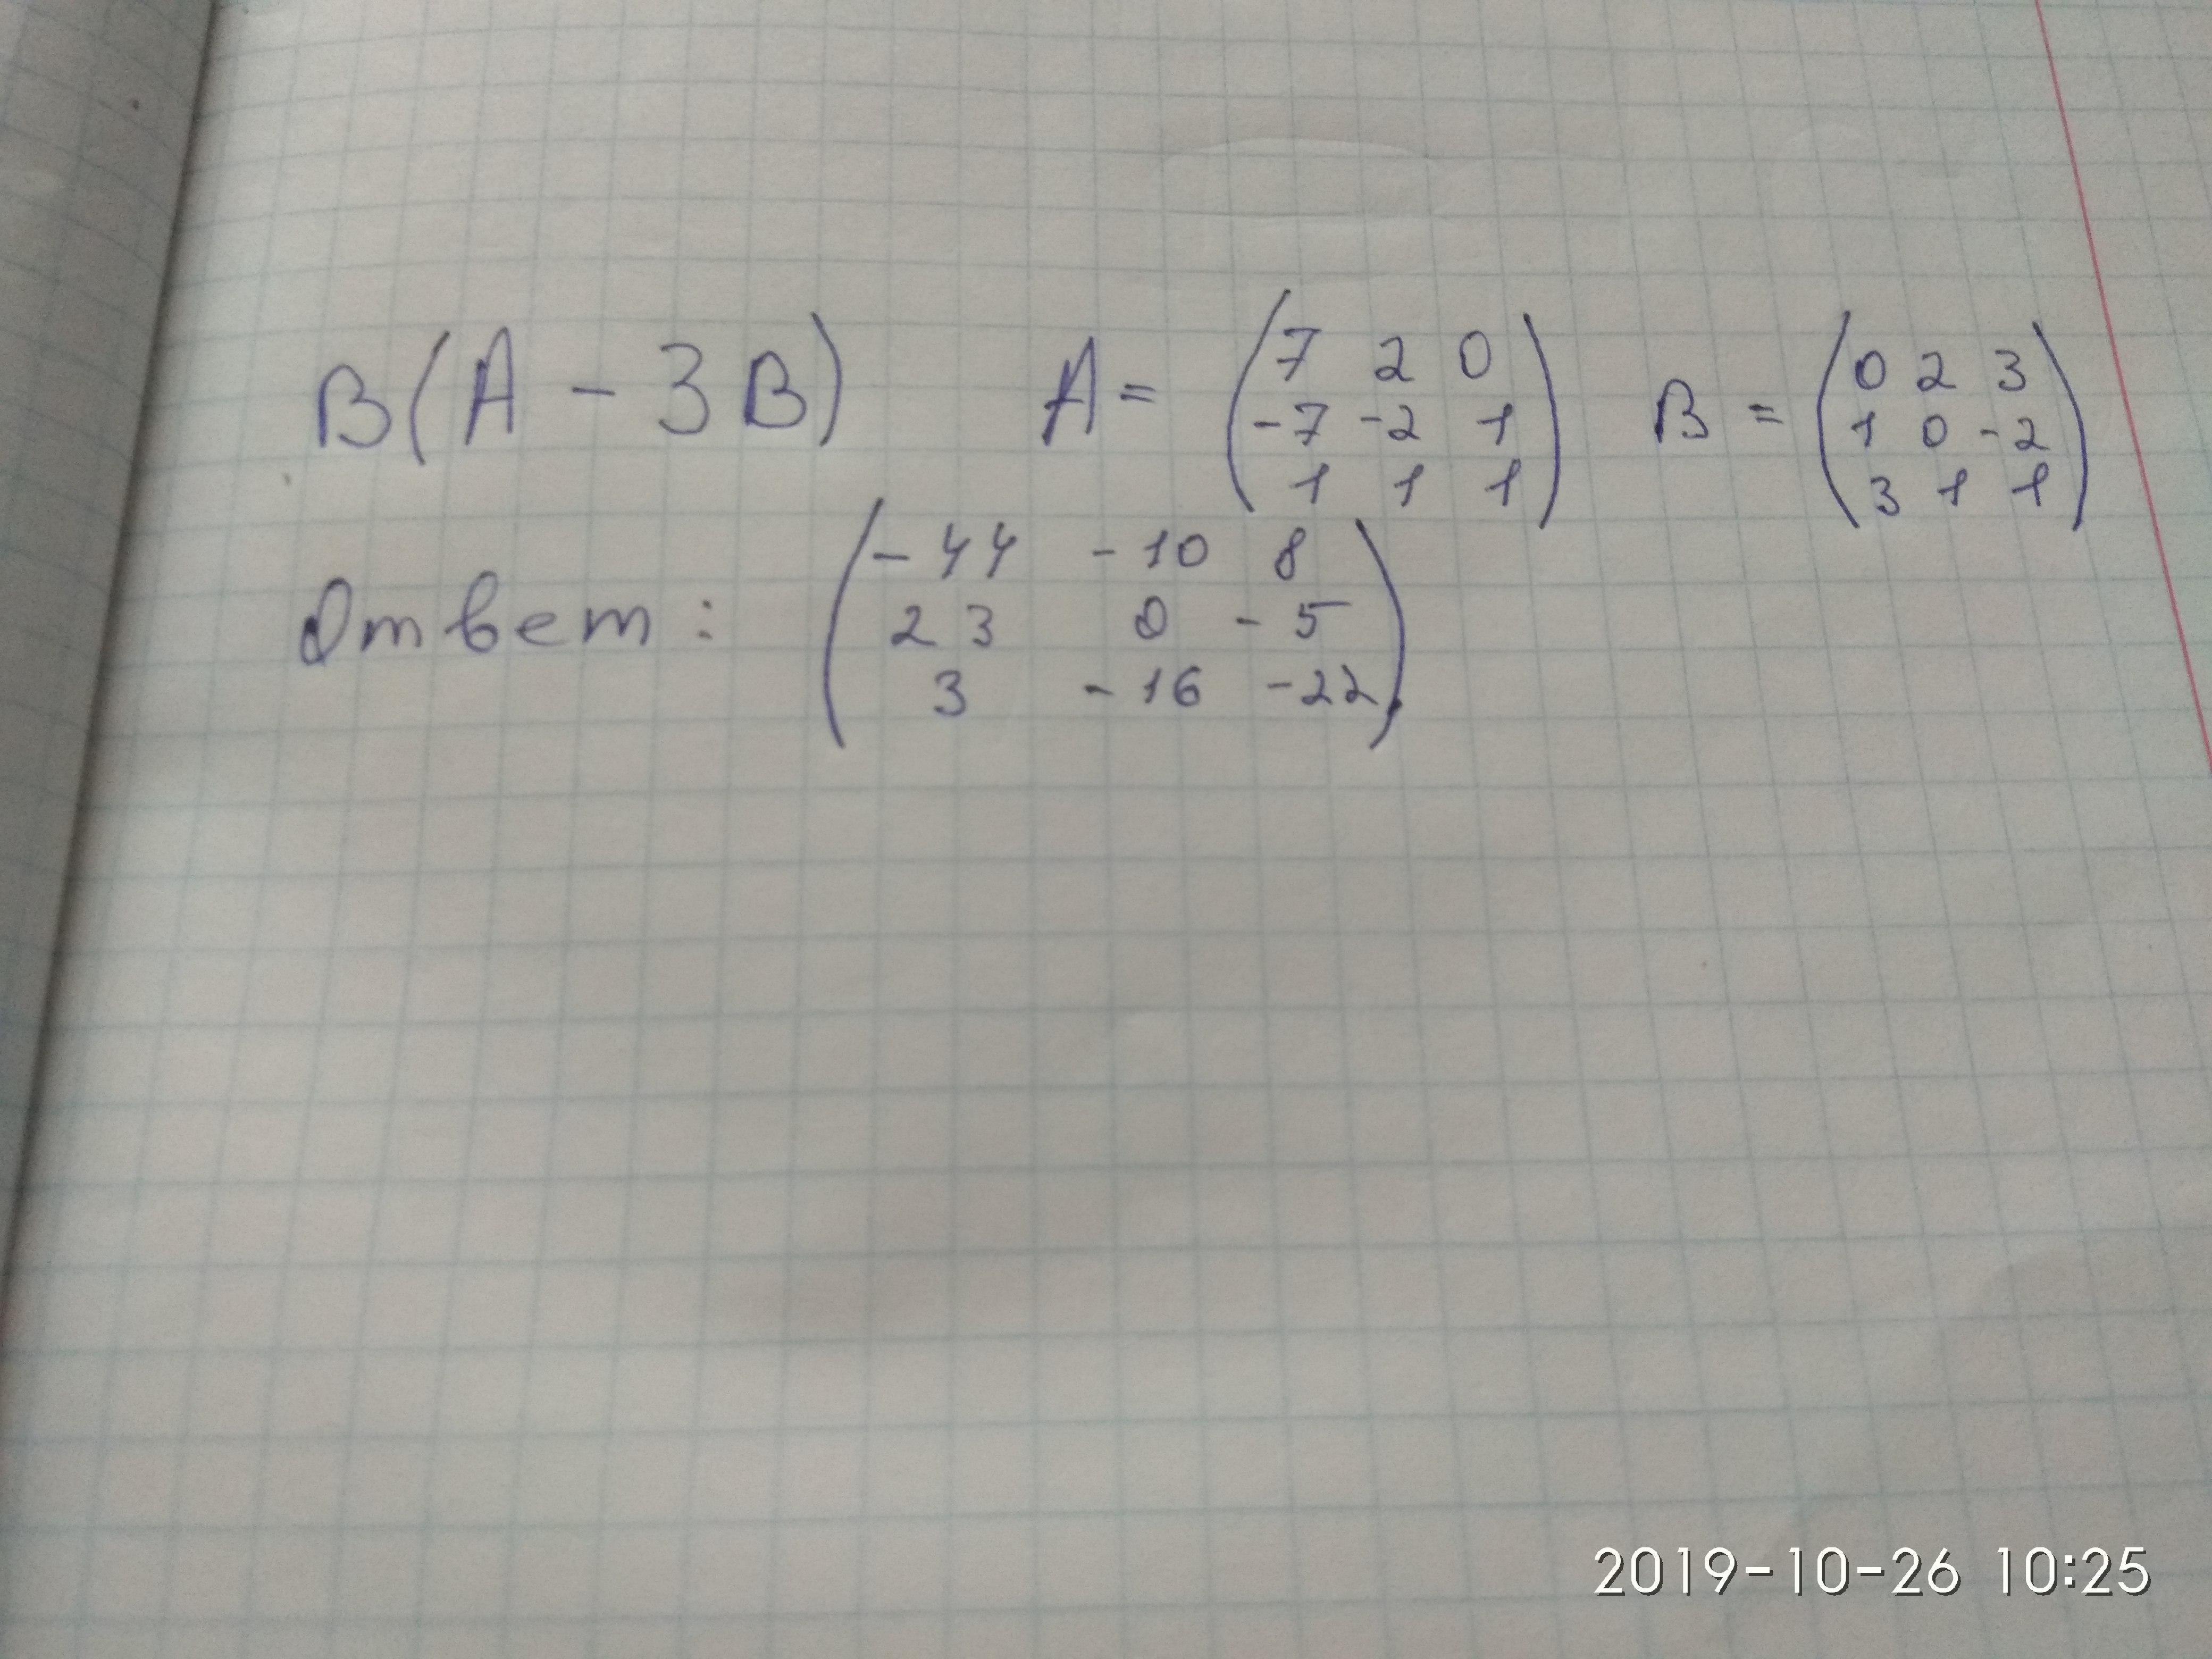 B(A - 3B) A = (7 2 0 B = (0 2 3
-7 -2 1 1 0 -2
1 1 1) 3 1 1)
Ответ: (-44 -10 8
23 0 -5
3 -16 -22)
2019-10-26 10:25